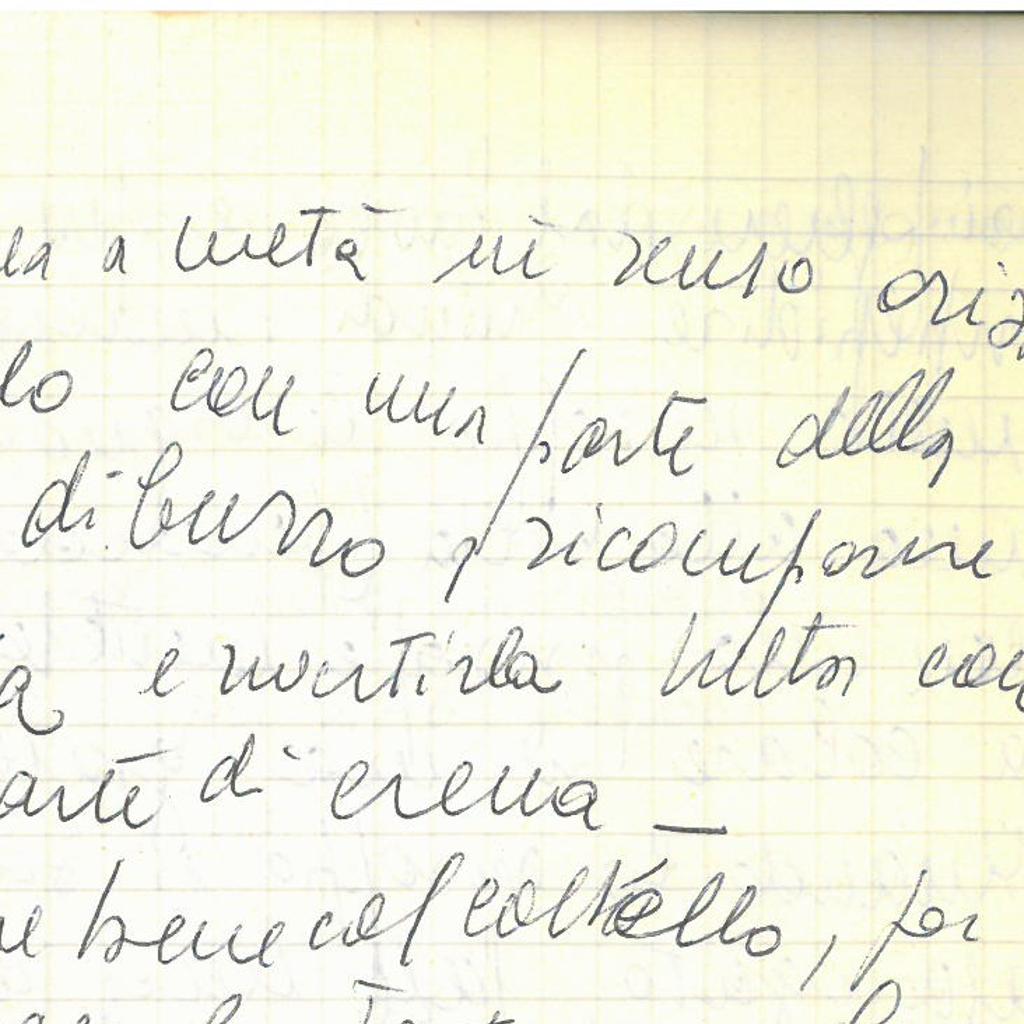 a metà in senso oriz
lo con una parte della
di burro, ricomporre
e rivestirla tutta con
arte di crema —
bene col coltello, poi